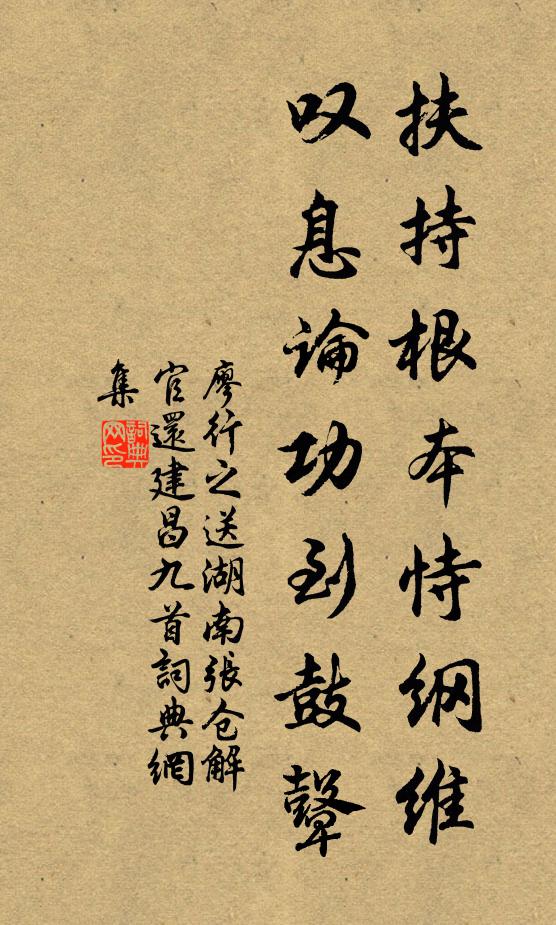 扶持根本恃纲维
叹息论功到鼓鼙
廖行之送湖南張仓解
官還建昌九首詞典網
集
詞典
网印